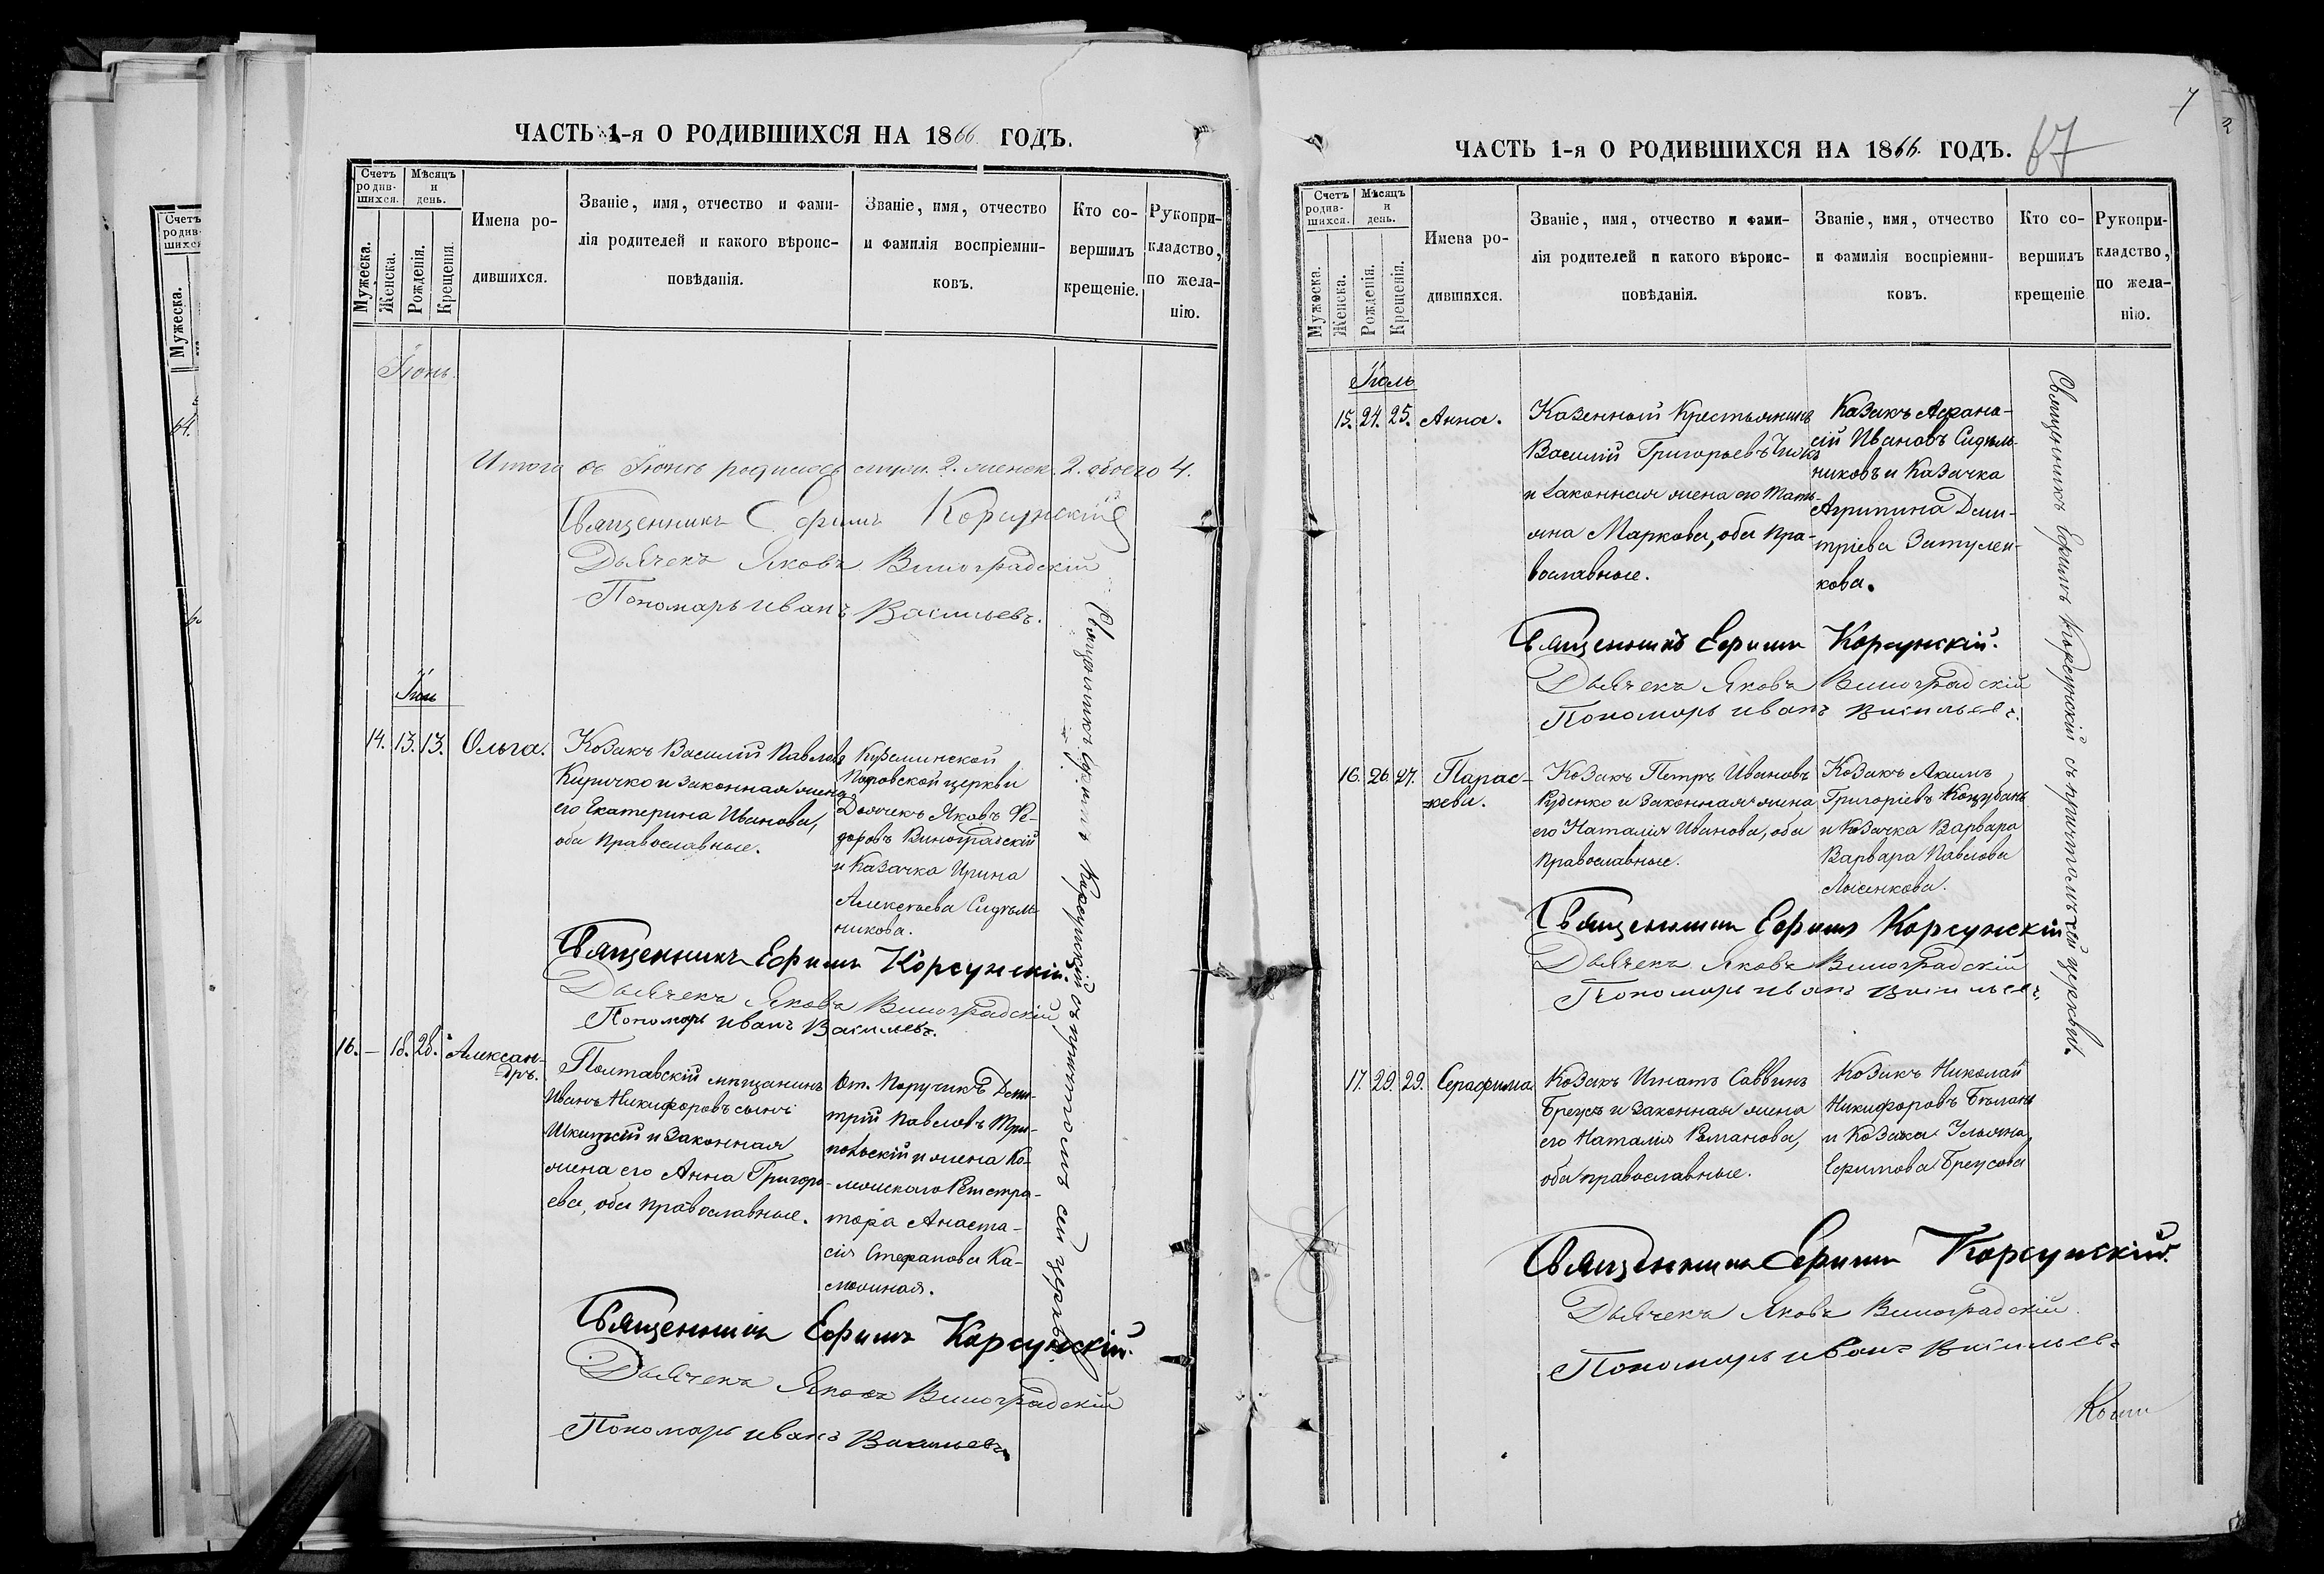 ЧАСТЬ 1-я О РОДИВШИХСЯ НА 1866 ГОДЪ.
Счетъ родив-шихся.
Мѣсяцъ и день.
Мужеска.
Женска.
Рожденія.
Крещенія.
Имена ро-
дившихся.
Званіе, имя, отчество и фами-
лія родителей и какого вѣроис-
повѣданія.
Званіе, имя, отчество
и фамилія воспріемни-
ковъ.
Кто со-
вершилъ
крещеніе.
Рукопри-
кладство,
по жела-
нію.
Іюнь.
Итого въ Іюнѣ родилось муж. 2. женск. 2. обоего 4.
Священникъ Ефимъ Корсунскій
Дьячекъ Яковъ Виноградскій
Пономарь Иванъ Васильевъ.
14. 13. 13. Ольга.
Козакъ Василій Павловъ
Киричко и законная жена
его Екатерина Иванова,
оба православные.
Кузьминской
Покровской церкви
Дьячекъ Яковъ Фе-
доровъ Виноградскій
и Казачка Ирина
Алексѣева Сидѣль-
никова.
Священникъ Ефимъ Корсунскій.
Дьячекъ Яковъ Виноградскій
Пономарь Иванъ Васильевъ.
16. — 18. 28. Алексан-
дръ.
Полтавскій мѣщанинъ
Иванъ Никифоровъ сынъ
и законная
жена его Анна Григорь-
ева, оба православные.
От. Поручикъ Дми-
трій Павловъ Три-
польскій и жена Ко-
Регистра-
тора Анаста-
сія Стефанова Ка-
Священникъ Ефимъ Корсунскій.
Дьячекъ Яковъ Виноградскій
Пономарь Иванъ Васильевъ
Священникъ Ефимъ Корсунскій съ причтомъ сей церкви.
ЧАСТЬ 1-я О РОДИВШИХСЯ НА 1866. ГОДЪ.
67
7
Счетъ родив-шихся.
Мѣсяцъ и день.
Мужеска.
Женска.
Рожденія.
Крещенія.
Имена ро-
дившихся.
Званіе, имя, отчество и фами-
лія родителей и какого вѣроис-
повѣданія.
Званіе, имя, отчество
и фамилія воспріемни-
ковъ.
Кто со-
вершилъ
крещеніе
Рукопри-
кладство,
по жела-
нію.
Іюль
15. 24. 25. Анна.
Казенный Крестьянинъ
Василій Григорьевъ
и законная жена его Тать-
яна Маркова, оба пра-
вославные.
Казакъ Афана-
сій Ивановъ Сидѣль-
никовъ и Казачка
Агрипина Дми-
тріева Затулен-
кова.
Священникъ Ефимъ Корсунскій.
Дьячекъ Яковъ Виноградскій
Пономарь Иванъ Васильевъ.
16. 26. 27. Парас-
кева.
Козакъ Петръ Ивановъ
Руденко и законная жена
его Наталія Иванова, оба
православные.
Козакъ Акимъ
Григоріевъ Коцубанъ
и Козачка Варвара
Варвара Павлова
Лысенкова.
Священникъ Ефимъ Корсунскій
Дьячекъ Яковъ Виноградскій
Пономарь Иванъ Васильевъ
17. 29. 29. Серафима
Козакъ Игнатъ Саввинъ
Бреусъ и законная жена
его Наталія Романова,
оба православные.
Козакъ Николай
Никифоровъ Бѣланъ
и Козачка Ульяна
Ефимова Бреусова
Священникъ Ефимъ Корсунскій.
Дьячекъ Яковъ Виноградскій.
Пономарь Иванъ Васильевъ
Священникъ Ефимъ Корсунскій съ причтомъ сей церкви.